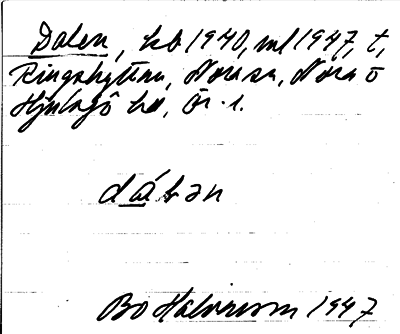 Dalen, hb 1940, ml 1947, t,
Ringshyttan, Nora sn, Nora o
Hjulsjö bd, Ör. l.
dálən
Bo Halvarson 1947